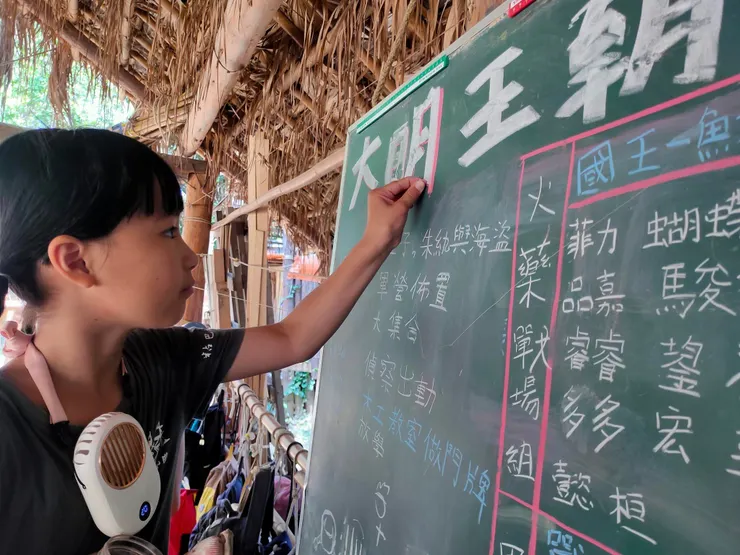 大明王朝
朱幼與海盜
軍營佈置
大集合
偵察出動
木工教室做門牌
放學
火藥戰場組
國王-魚
菲力 蝴蝶
品嘉 駿
睿睿 鋆
多多 宏
懿桓